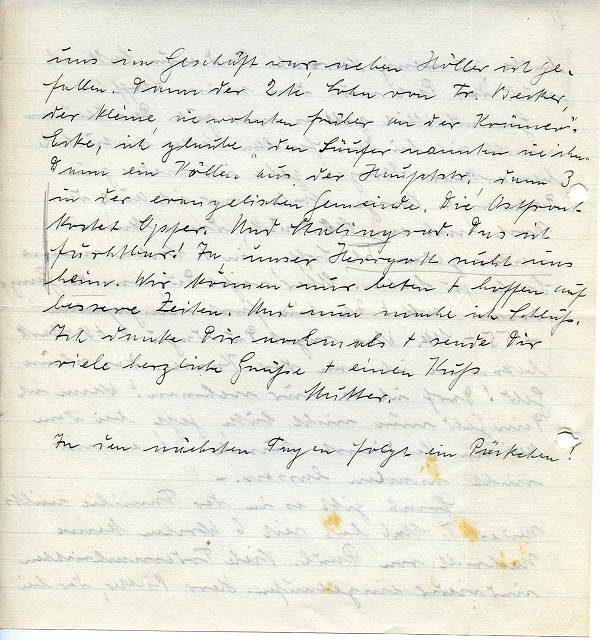 uns im Geschäft war, neben Höller ist ge-
fallen. Dann der 2te Sohn von Fr. Becker,
der kleine, sie wohnten früher an der Krämer's
Ecke, ich glaube "den Säufer nannten sie ihn."
Dann ein Köllen aus der Hauptstr., dann 3
in der evangelischen Gemeinde. Die Ostfron-
kostet Opfer. Und Stalingrad. Das ist
furchtbar! Ja unser Herrgott sucht uns
heim. Wir können nur beten + hoffen auf
bessere Zeiten. Und nun mache ich Schluß.
Ich danke Dir nochmals + sende Dir
viele herzliche Grüße + einen Kuß
Mutter.
In den nächsten Tagen folgt ein Päckchen!